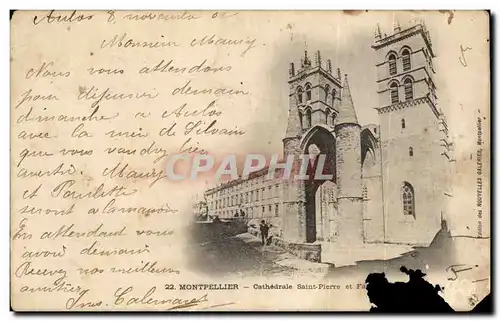 Aulas 8 novembre
Monsieur Maury
Nous vous attendons
pour déjeuner demain
dimanche à Aulas
avec la de Silvain
que vous voudrez bien
avertir. Maury
et Paulette
seront à la maison
En attendant vous
avoir demain
Recevez nos meilleures
amitiés
CPARAMA
22. MONTPELLIER - Cathédrale Saint-Pierre et Fa
Edition des NOUVELLES GALERIES, Montpellier